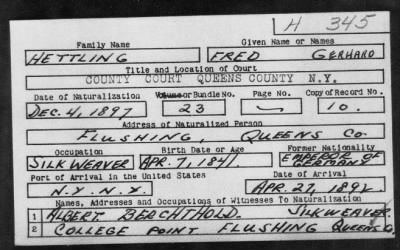 H 345
Family Name Given Name or Names
HETTLING FRED GERHARD
Title and Location of Court
COUNTY COURT QUEENS COUNTY N.Y.
Date of Naturalization Volume or Bundle No. Page No. Copy of Record No.
DEC. 4, 1897 23 — 10.
Address of Naturalized Person
FLUSHING, QUEENS CO.
Occupation Birth Date or Age Former Nationality
SILK WEAVER APR. 7, 1841 EMPEROR OF GERMANY
Port of Arrival in the United States Date of Arrival
N.Y. N.Y. APR. 27, 1892.
Names, Addresses and Occupations of Witnesses To Naturalization
1 ALBERT BERCHTHOLD. SILKWEAVER.
2 COLLEGE POINT FLUSHING QUEENS Co.